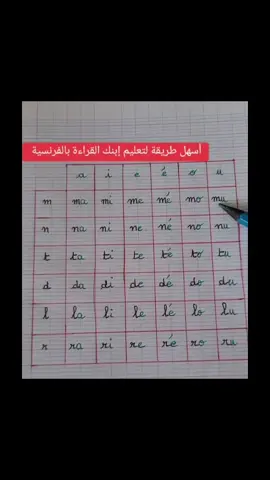 أسهل طريقة لتعليم إبنك القراءة بالفرنسية
a i e é o u
m ma mi me mé mo mu
n na ni ne né no nu
t ta ti te té to tu
d da di de dé do du
l la li le lé lo lu
r ra ri re ré ro ru